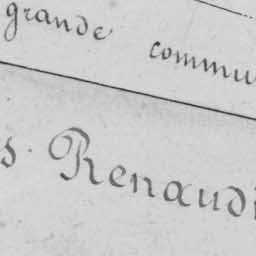 grande commu
s. Renaudi